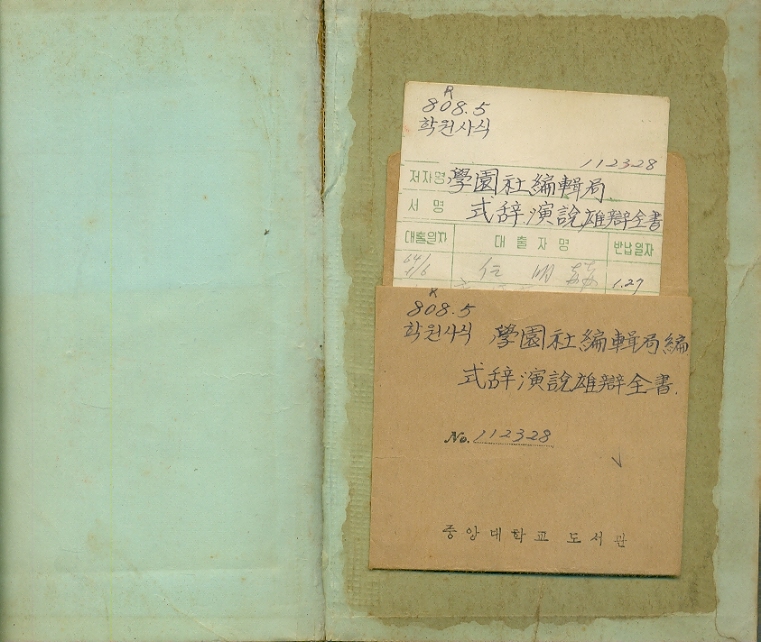 R
808.5
학원사식
112328
저자명 學園社編輯局
서 명 式辞演說雄辯全書
대출일자 대 출 자 명 반납일자
1.27
R
808.5
학원사식 學園社編輯局編
式辞演說雄辯全書.
No. 112328
중앙대학교 도서관